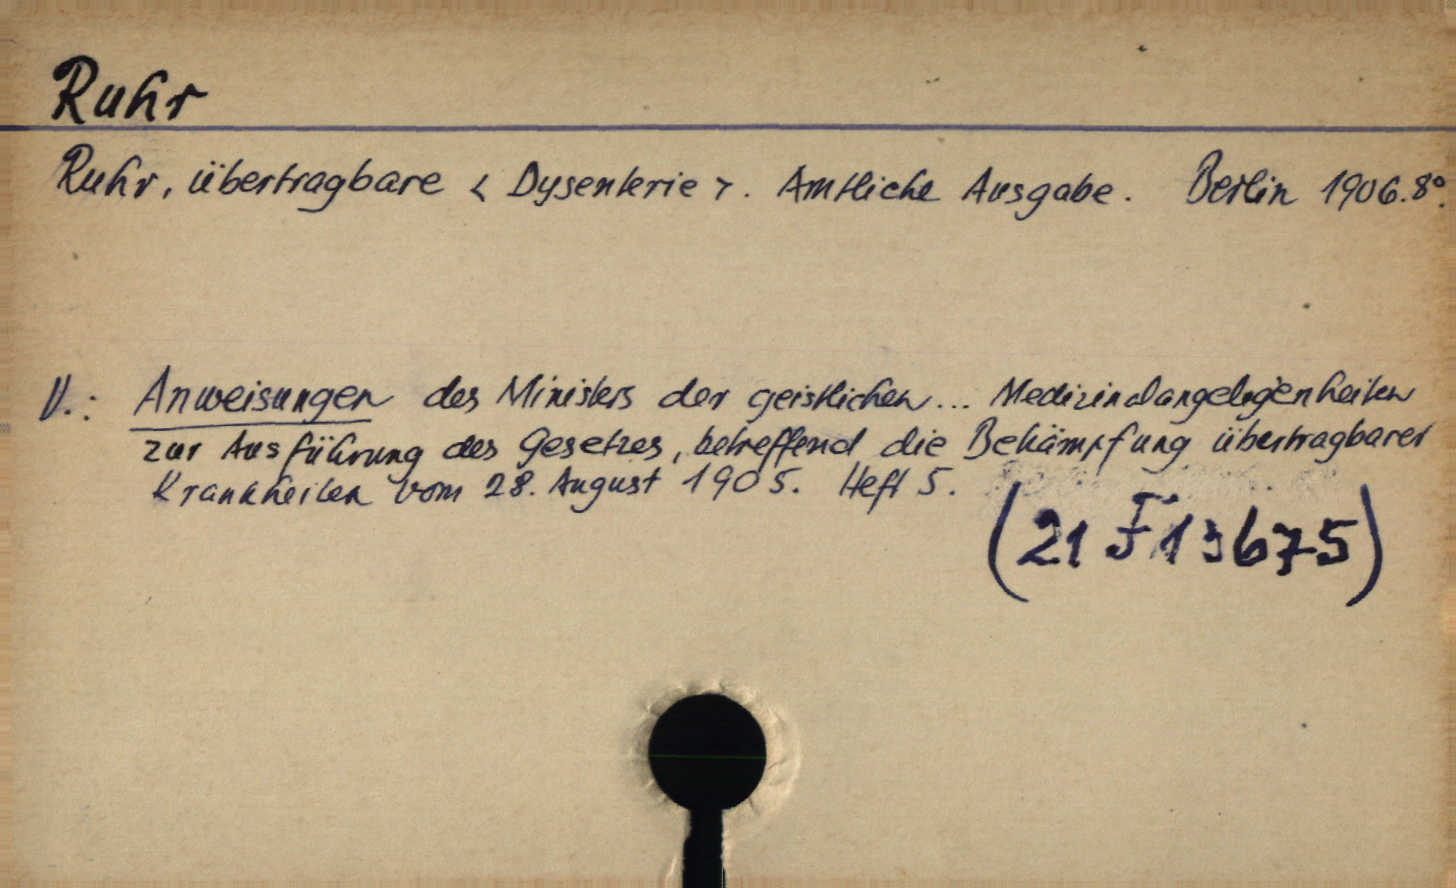 Ruhr
Ruhr, übertragbare < Dysenterie >. Amtliche Ausgabe. Berlin 1906. 8°.
V.: Anweisungen des Ministers der geistlichen... Medizinalangelegenheiten
zur Ausführung des Gesetzes, betreffend die Bekämpfung übertragbarer
Krankheiten vom 28. August 1905. Heft 5.
(21 F 13675)